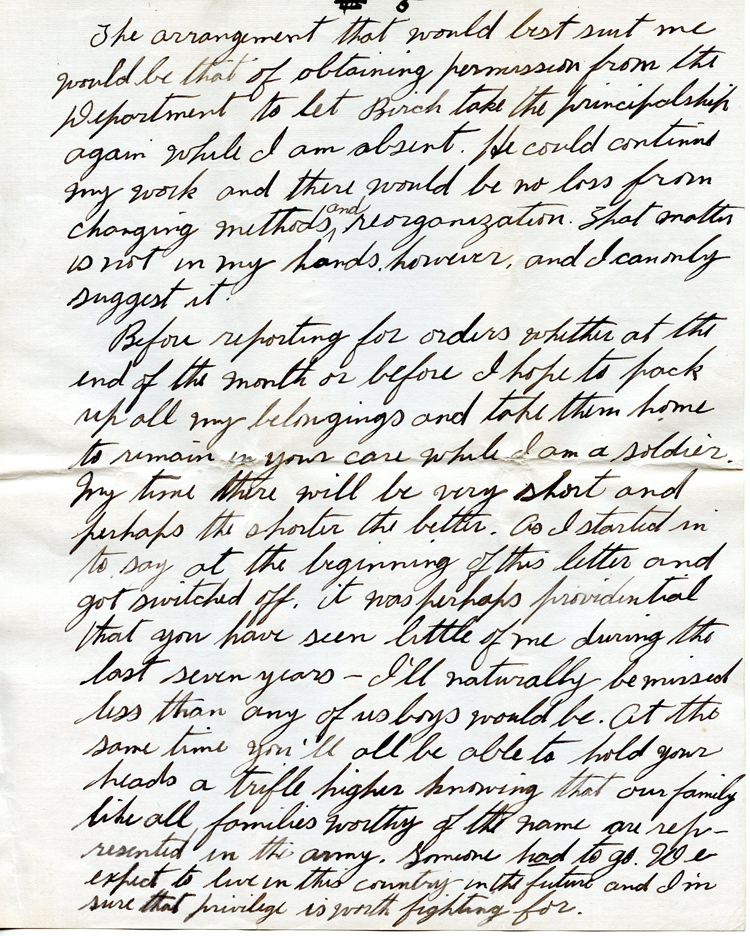 The arrangement that would best suit me
would be that of obtaining permission from the
Department to let Birch take the principalship
again while I am absent. He could continue
my work and there would be no loss from
changing methods, and reorganization. That matter
is not in my hands, however, and I can only
suggest it.
Before reporting for orders whether at the
end of the month or before I hope to pack
up all my belongings and take them home
to remain in your care while I am a soldier.
My time there will be very short and
perhaps the shorter the better. As I started in
to say at the beginning of this letter and
got switched off, it was perhaps providential
that you have seen little of me during the
last seven years – I'll naturally be missed
less than any of us boys would be. At the
same time you'll all be able to hold your
heads a trifle higher knowing that our family
like all families worthy of the name are rep-
resented in the army. Someone had to go. We
expect to live in this country in the future and I'm
sure that privilege is worth fighting for.